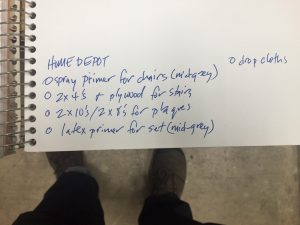 HOME DEPOT
O spray primer for chairs (mid-grey)
O 2x4's + plywood for stairs
O 2x10's/2x8's for plaques
O latex primer for set (mid-grey)
O drop cloths